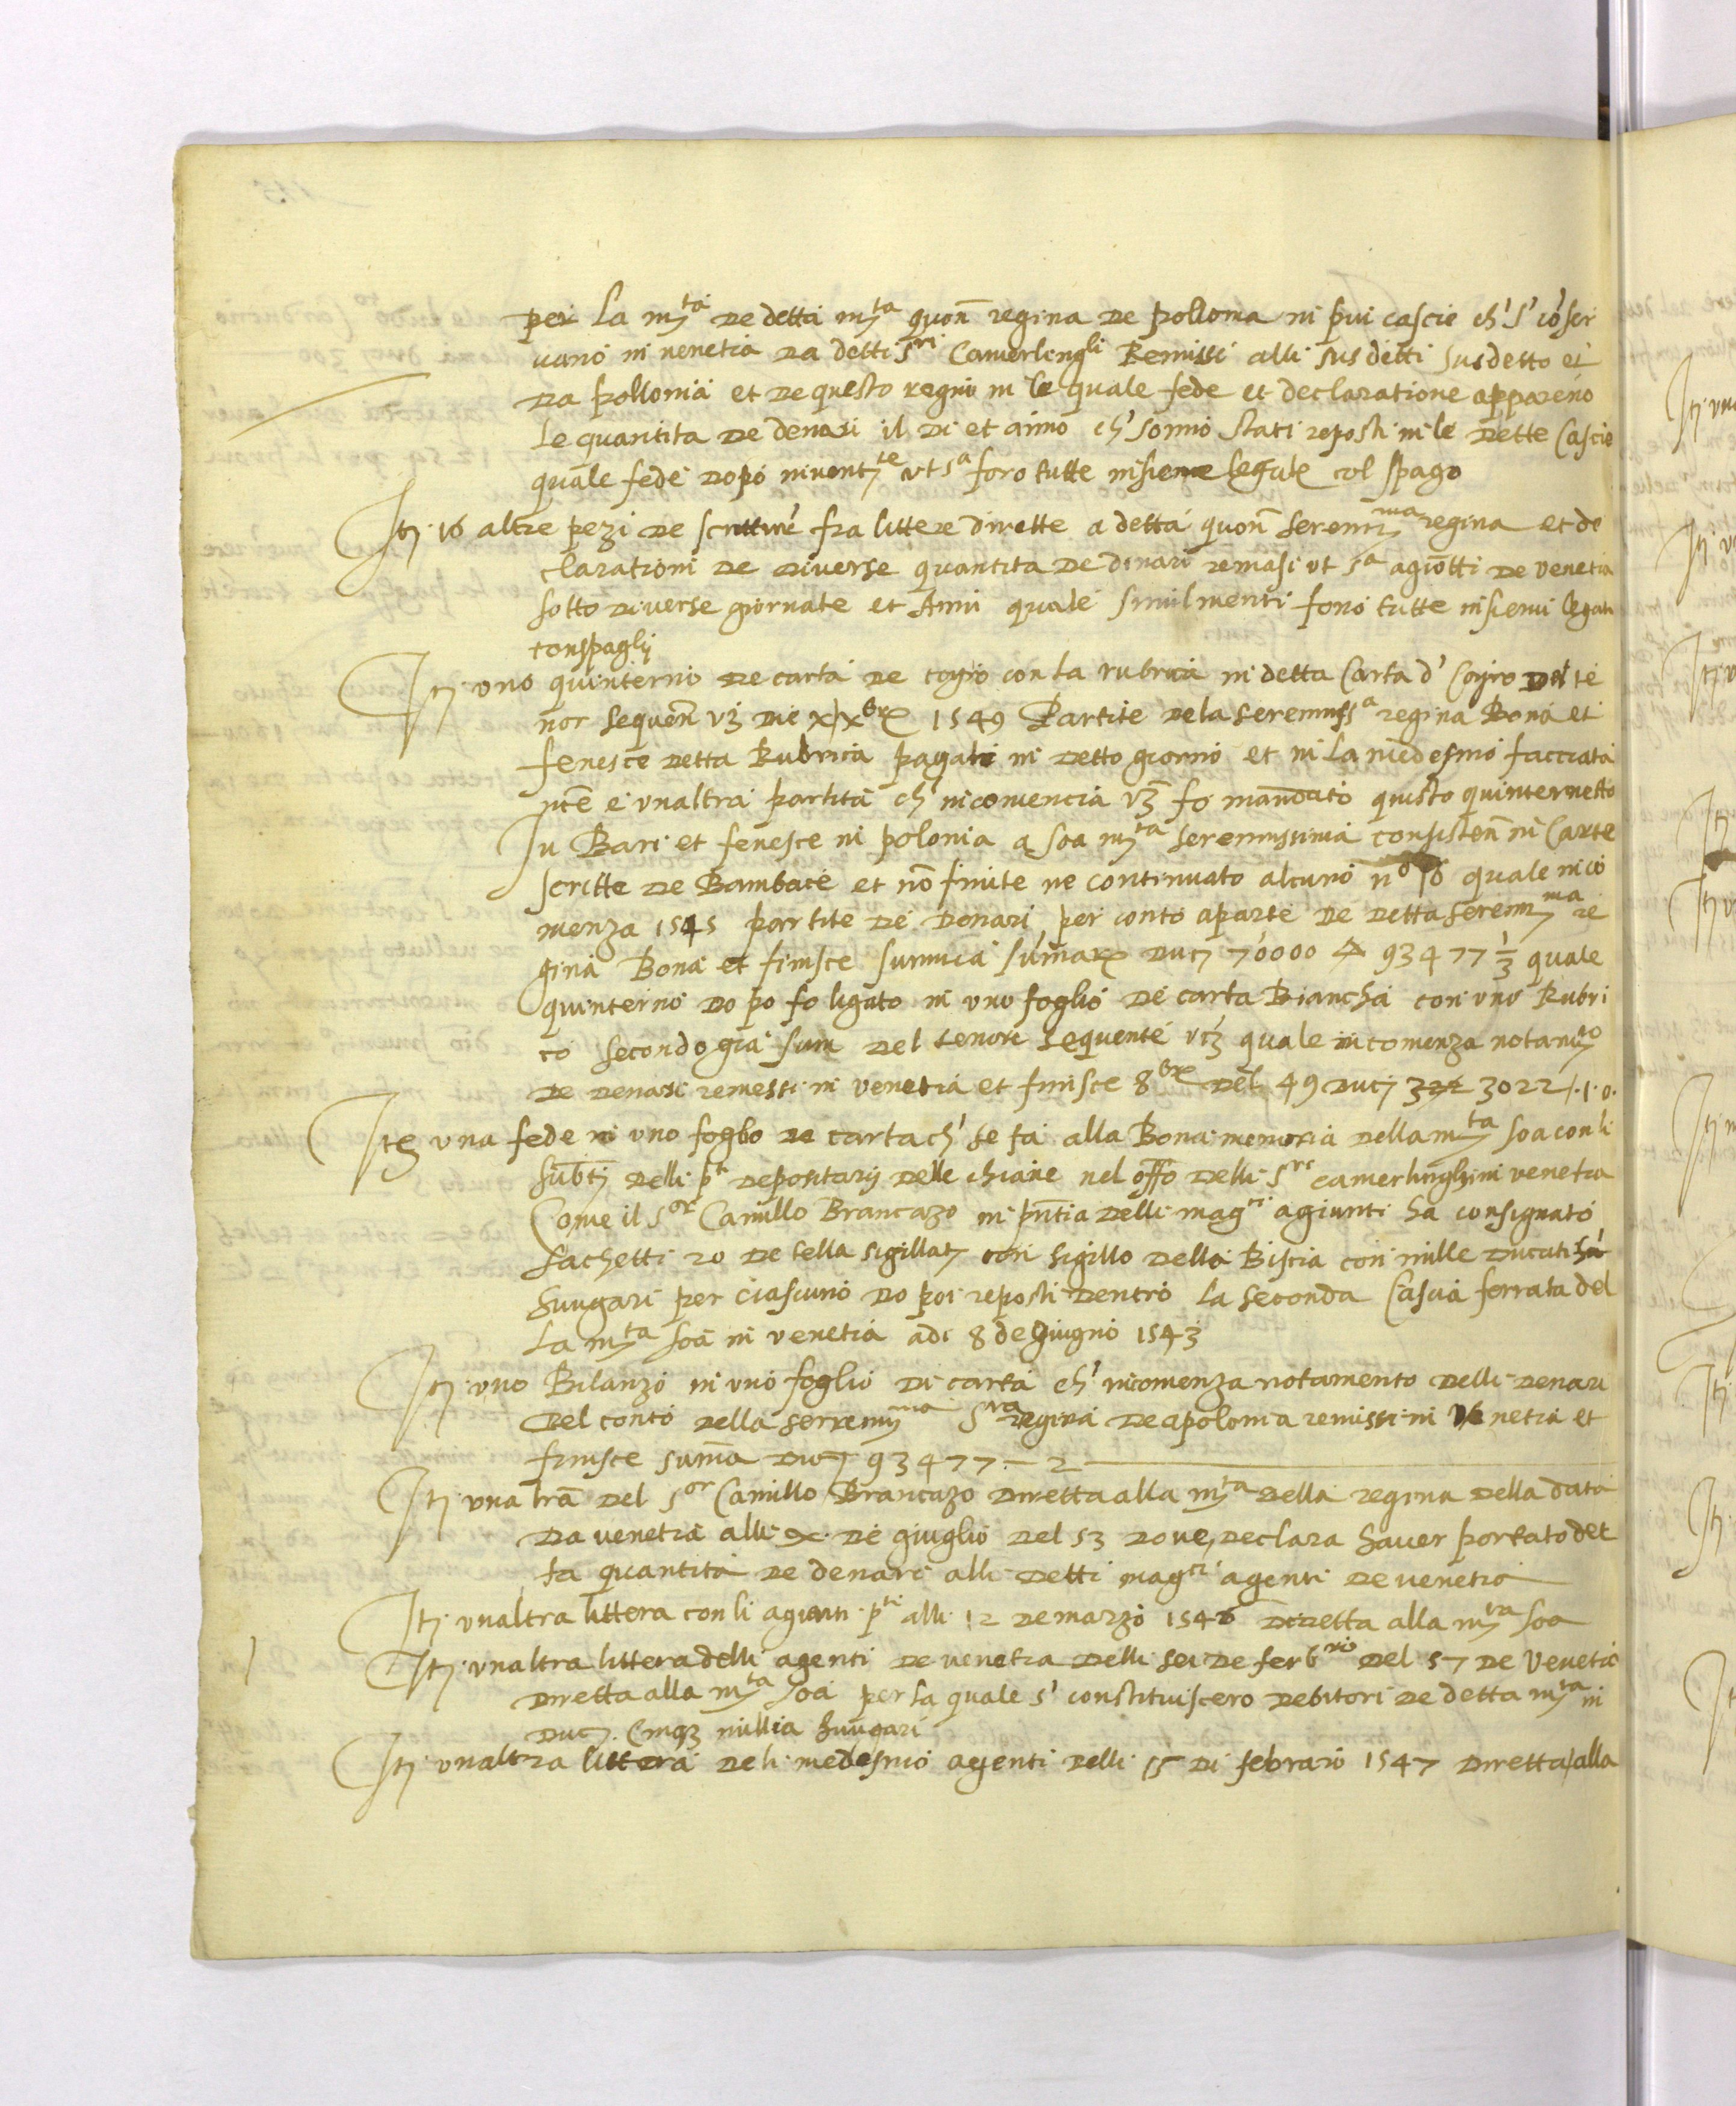 per La m.tà de detta m.ta quon regina de pollonia in piu cascie ch' s' coser
vano in venetia da detti s.ri Camerlengli Remissi alli sus detti susdetto et
Da pollonia et de questo regno in le quale fede et declaratione appareno
Le quantita de denari il di et anno ch' sonno stati reposti in le dette Cascie
quale fede dopo invent.te ut s.a foro tutte insieme legate col spago
Itj 16 altre pezi de scritture fra littere dirette a detta quon Serenis.ma regina et de
clarationi de diverse quantita de denari remasi ut s.a agiotti de venetia
sotto diverse giornate et Anni quale similmenti foro tutte insiemi legati
con spaglj
Itj uno quinterno de carta de coyro con la rubrica in detta Carta d' Coyro del te
nor sequen vz die xj xbre 1549 Partite de la serenissa regina Bona et
fenesce detta Rubrica pagati in detto giorno et in la medesmo facciata
nce e unaltra partita ch' incomencia vz fo mandato quisto quinternetto
In Bari et fenesce in polonia a soa m.ta serennissima consisten in Carte
scritte de Bambace et no finite ne continuato alcuno n.o 16 quale inco
menza 1545 partite de denari per conto aparte de detta serenis.ma re
gina Bona et finisce summa sumar duc 70000 93477 1/3 quale
quinterno do po fo ligato in uno foglio de carta Biancha con uno Rubri
co secondo gia sum del tenore sequente vz quale incomenza notam.to
de denari remessi in venetia et finisce 8bre del 49 ducj 322 3022 /.1.0.
Ite una fede in uno foglio de carta ch' se fa alla Bona memoria della m.ta soa con li
subtj delli p.ti depositarij delle chiave nel offo delli s.ri camerlinghi in venetia
Come il s.or Camillo Brancazo in pntia delli mag.ci agiunti ha consignato
sachetti 20 de tella sigillatj con sigillo della Biscia con mille ducati ha
hungari per ciascuno do poi reposti dentro La seconda Cascia ferrata del
La m.ta soa in venetia adi 8 de giugno 1543
Itj uno Bilanzo in uno foglio di carta ch' incomenza notamento delli denari
del conto della serrenis.ma S.ra regina de apolonia remissi in Venetia et
finisce suma ducj 93477 — 2
Itj una lra del s.or Camillo Brancazo diretta alla m.ta della regina della data
da venetia alli x de giuglio del 53 dove declara haver portato det
ta quantita de denari alli detti mag.ci agenti de venetia
Itj unaltra littera con li agionti p.ti alli 12 de marzo 1546 diretta alla m.ta soa
Itj unaltra littera delli agenti de venetia delli sei de feb.rio del 57 de Venetia
diretta alla m.ta soa per la quale s' constituiscero debitori de detta m.ta in
ducj Cinqz millia hungari
Itj unaltra littera de li medesmo agenti delli 15 di febraro 1547 diretta alla